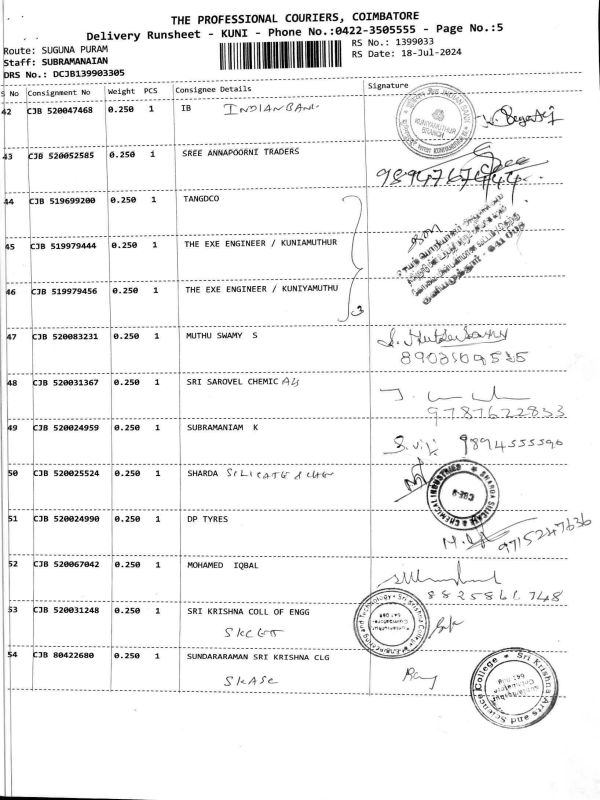 THE PROFESSIONAL COURIERS, COIMBATORE
Delivery Runsheet - KUNI - Phone No.:0422-3505555 - Page No.:5
Route: SUGUNA PURAM
RS No.: 1399033
Staff: SUBRAMANAIAN
RS Date: 18-Jul-2024
DRS No.: DCJB139903305
S No Consignment No Weight PCS Consignee Details Signature
42 CJB 520047468 0.250 1 IB INDIAN BANK
KUNIYAMUTHUR
BRANCH
43 CJB 520052585 0.250 1 SREE ANNAPOORNI TRADERS
44 CJB 519699200 0.250 1 TANGDCO
45 CJB 519979444 0.250 1 THE EXE ENGINEER / KUNIAMUTHUR
46 CJB 519979456 0.250 1 THE EXE ENGINEER / KUNIYAMUTHU
3
47 CJB 520083231 0.250 1 MUTHU SWAMY S
48 CJB 520031367 0.250 1 SRI SAROVEL CHEMICALS
9787622833
49 CJB 520024959 0.250 1 SUBRAMANIAM K
9894555590
50 CJB 520025524 0.250 1 SHARDA SILICATE & CHE
SHARDA SILICATE & CHEMICAL INDUSTRIES
CBE-8
51 CJB 520024990 0.250 1 DP TYRES
9715247636
52 CJB 520067042 0.250 1 MOHAMED IQBAL
8825861748
53 CJB 520031248 0.250 1 SRI KRISHNA COLL OF ENGG
SKCET
54 CJB 80422680 0.250 1 SUNDARARAMAN SRI KRISHNA CLG
SKASC
Sri Krishna Arts and Science College